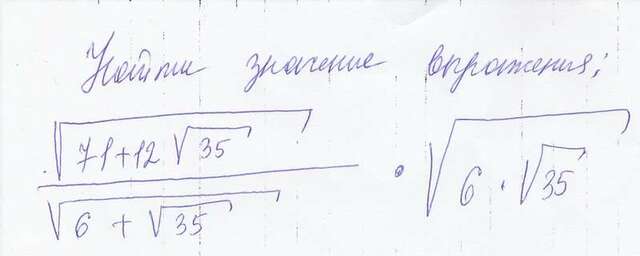 Найти значение выражения;
√(71+12√35)
/ √(6+√35) · √(6·√35)